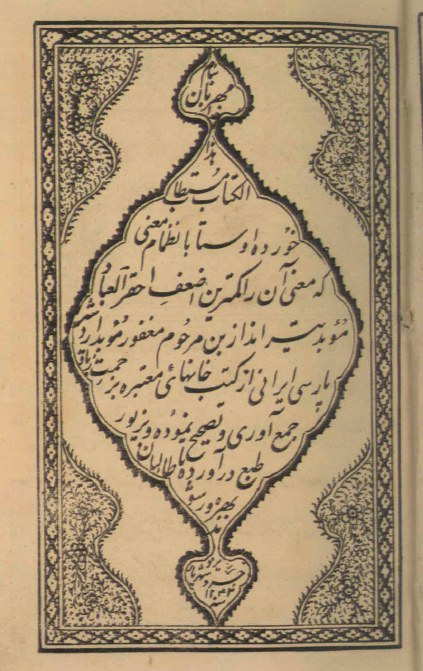 هذا
الکتاب مستطاب
خورده اوستا با نظام معنی
که معنی آن را کمترین اضعف احقر العباد
مؤبد تیرانداز بن مرحوم مغفور مؤبد اردشیر
پارسی ایرانی از کتب خانهای معتبره بزحمت
جمع آوری و تصحیح نموده و بزیور
طبع درآورده تا طالبان
بهره ور شوند
۱۲۴۴